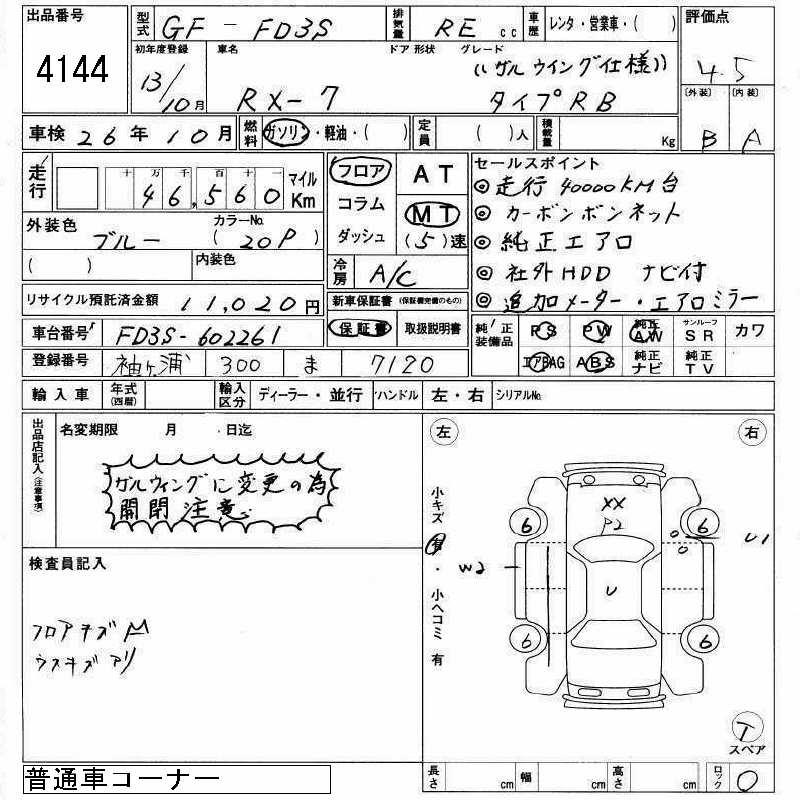 出品番号 4144
型式 GF - FD3S 排気量 RE cc 車歴 レンタ・営業車・( ) 評価点 4.5
初年度登録 13/10月 車名 RX-7 ドア 形状 グレード ((ガルウイング仕様)) タイプRB
〔外装〕 B 〔内装〕 A
車検 26年10月 燃料 ガソリン・軽油・( ) 定員 ( )人 積載量 Kg
走行 十万千百十一 46,560 マイル Km
フロア コラム ダッシュ AT MT (5)速
セールスポイント
◎走行 40000KM台
◎カーボンボンネット
◎純正エアロ
◎社外HDD ナビ付
◎追加メーター・エアロミラー
外装色 ブルー カラーNo. (20P)
( ) 内装色
冷房 A/C
リサイクル預託済金額 11,020円
新車保証書 (保証継続完備のもの)
保証書 取扱説明書
車台番号 FD3S-602261
純正装備品 PS PW 純正AW サンルーフSR カワ
エアBAG ABS 純正ナビ 純正TV
登録番号 袖ヶ浦 300 ま 7120
輸入車 年式(西暦) 輸入区分 ディーラー・並行 ハンドル 左・右 シリアルNo.
出品店記入(注意事項)
名変期限 月 日迄
ガルウィングに変更の為
開閉注意
検査員記入
フロアキズ
ウスキズアリ
左 右
小キズ 有・小ヘコミ 有
XX
P2
6 6
U1
W2
U
6 6
T
スペア
普通車コーナー
長さ cm 幅 cm 高さ cm ロック O